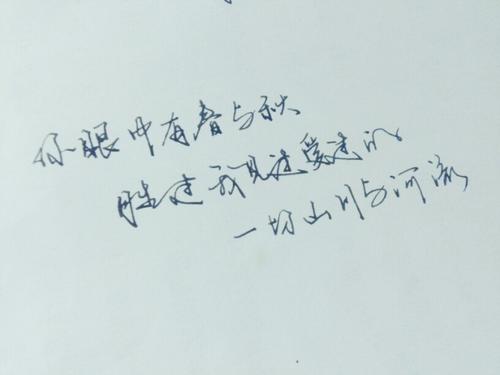 你眼中有春与秋
胜过我见过爱过的
一切山川与河流